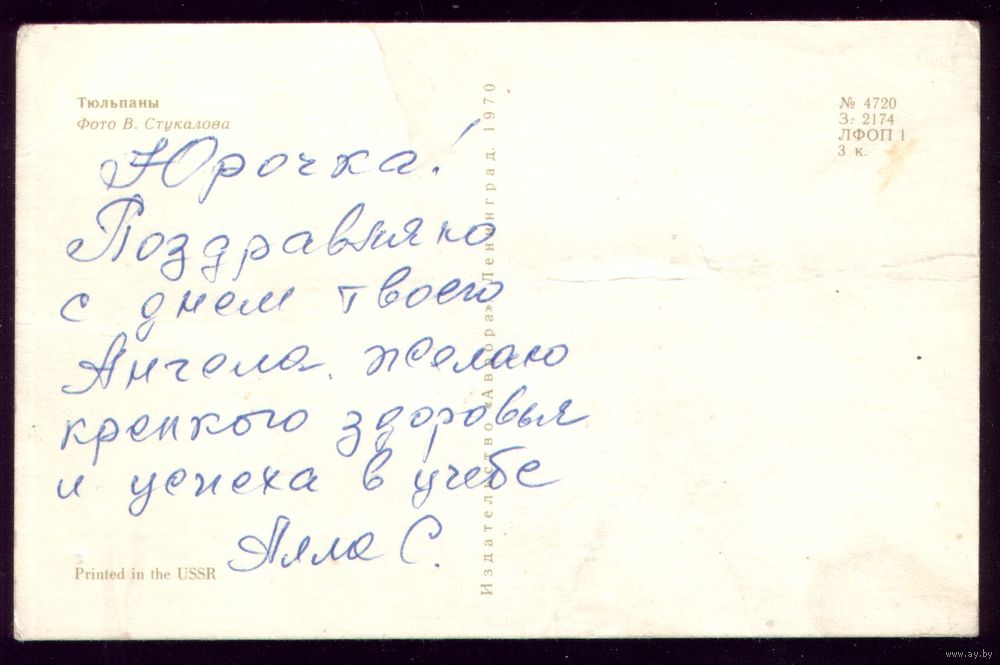 Тюльпаны
Фото В. Стукалова
Юрочка!
Поздравляю
с днем твоего
Ангела. желаю
крепкого здоровья
и успеха в учебе
Алла С.
Printed in the USSR
Издательство «Аврора» Ленинград. 1970
№ 4720
З. 2174
ЛФОП 1
3 к.
www.ay.by